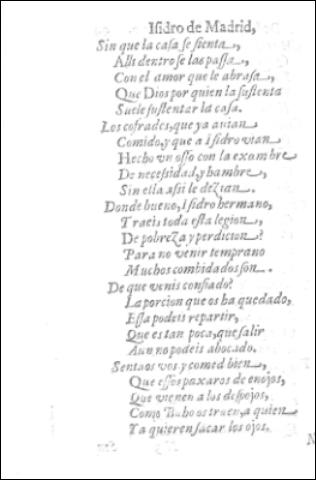 Isidro de Madrid,
Sin que la casa se sienta,
Alli dentro se las passa,
Con el amor que le abrasa,
Que Dios por quien la sustenta
Suele sustentar la casa.
Los cofrades, que ya auian
Comido, y que a Isidro vian
Hecho vn osso con la exambre
De necessidad, y hambre,
Sin ella assi le dezian.
Donde bueno, Isidro hermano,
Traeis toda esta legion,
De pobreza y perdicion?
Para no venir temprano
Muchos combidados son.
De que venis confiado?
La porcion que os ha quedado,
Essa podeis repartir,
Que es tan poca, que salir
Aun no podeis abocado.
Sentaos vos y comed bien,
Que essos paxaros de enojos,
Que vienen a los despojos,
Como Buho os traen, a quien
Ya quieren sacar los ojos.
N